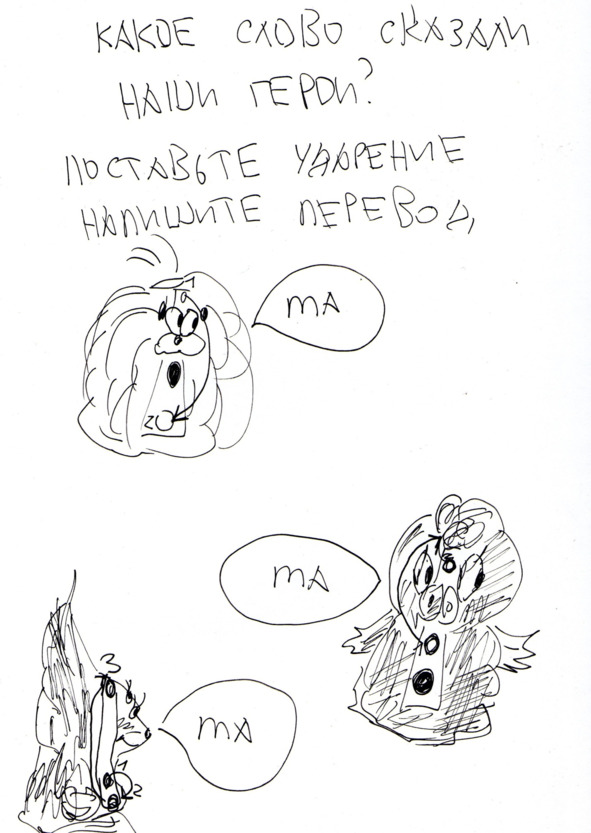 КАКОЕ СЛОВО СКАЗАЛИ
НАШИ ГЕРОИ?
ПОСТАВЬТЕ УДАРЕНИЕ
НАПИШИТЕ ПЕРЕВОД,
1
МА
2
МА
3
МА
1
2